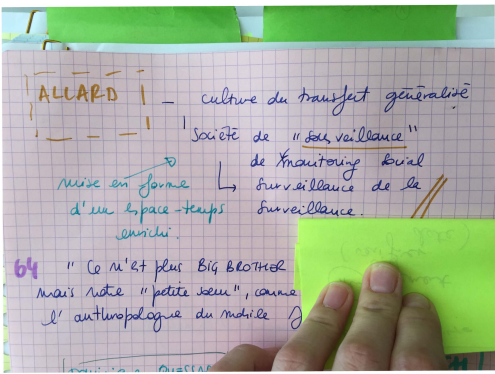 ALLARD — culture du transfert généralisé.
Société de "sousveillance"
de monitoring social
surveillance de la
surveillance.
mise en forme
d'un espace-temps
enrichi.
64
"Ce n'est plus BIG BROTHER
mais notre "petite sœur", comme
l'anthropologue du mobile